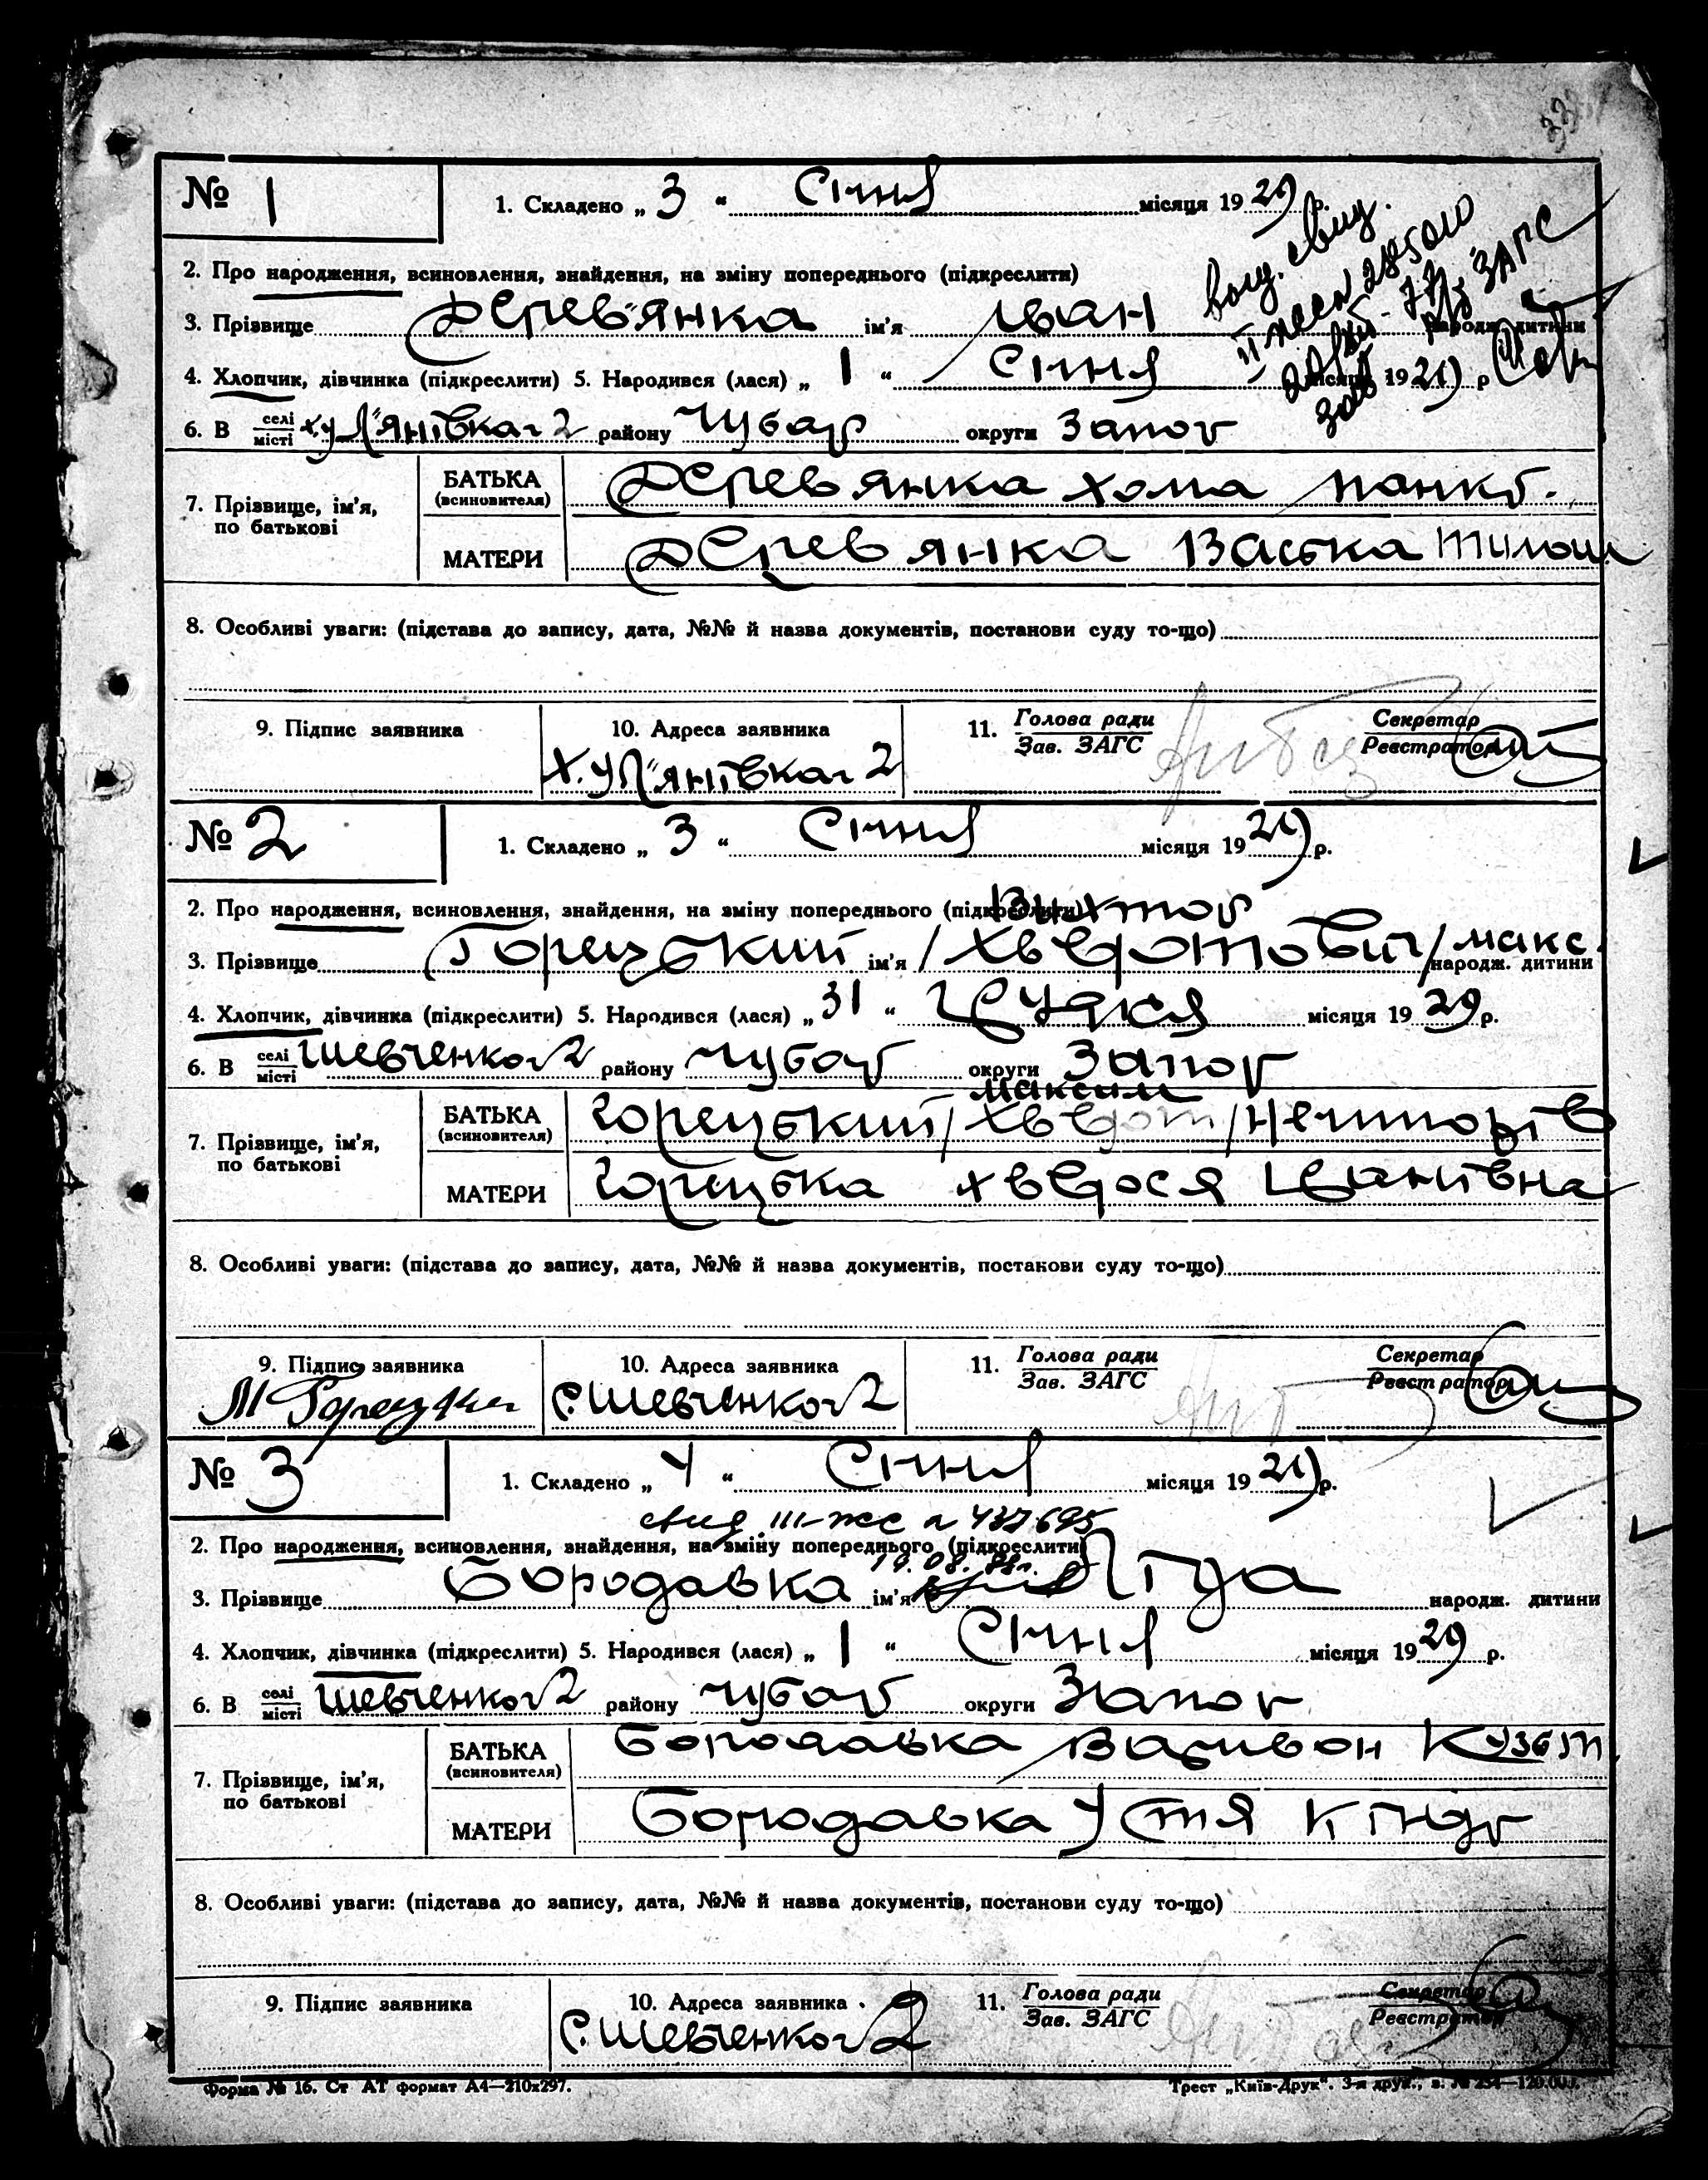 № 1
1. Складено „ 3 “ Січня місяця 1929 р.
2. Про народження, всиновлення, знайдення, на зміну попереднього (підкреслити)
3. Прізвище Дерев'янка ім'я Іван народж. дитини
4. Хлопчик, дівчинка (підкреслити) 5. Народився (лася) „ 1 “ Січня місяця 1929 р
6. В селі місті х. Ул'янівка 2 району Чубар округи Запор
7. Прізвище, ім'я, по батькові
БАТЬКА (всиновителя) Дерев янка Хома Панкр.
МАТЕРИ Дерев янка Васька
8. Особливі уваги: (підстава до запису, дата, №№ й назва документів, постанови суду то-що)
9. Підпис заявника
10. Адреса заявника
Х. Ул'янівка 2
11. Голова ради Зав. ЗАГС
Секретар Реестратор
№ 2
1. Складено „ 3 “ Січня місяця 1929 р.
2. Про народження, всиновлення, знайдення, на зміну попереднього (підкреслити)
Вихтор
3. Прізвище Горецький ім'я /Хведотович/ макс. народж. дитини
4. Хлопчик, дівчинка (підкреслити) 5. Народився (лася) „ 31 “ місяця 1929 р.
6. В селі місті Шевченко 2 району Чубар округи Запор
7. Прізвище, ім'я, по батькові
максим
БАТЬКА (всиновителя) Горецький /Хведот/
МАТЕРИ Горецька Хведося Іванівна
8. Особливі уваги: (підстава до запису, дата, №№ й назва документів, постанови суду то-що)
9. Підпис заявника
М Горецкий
10. Адреса заявника
С. Шевченко 2
11. Голова ради Зав. ЗАГС
Секретар Реестратор
№ 3
1. Складено „ 4 “ Січня місяця 1929 р.
свид. III-ЖС № 437695
2. Про народження, всиновлення, знайдення, на зміну попереднього (підкреслити)
19. 08. 88г.
3. Прізвище Бородавка ім'я Ліда народж. дитини
4. Хлопчик, дівчинка (підкреслити) 5. Народився (лася) „ 1 “ Січня місяця 1929 р.
6. В селі місті Шевченко 2 району Чубар округи Запор
7. Прізвище, ім'я, по батькові
БАТЬКА (всиновителя) Бородавка Варивон Кузьм.
МАТЕРИ Бородавка Устя Кіндр
8. Особливі уваги: (підстава до запису, дата, №№ й назва документів, постанови суду то-що)
9. Підпис заявника
10. Адреса заявника
С. Шевченко 2
11. Голова ради Зав. ЗАГС
Секретар Реестратор
Форма № 16. Ст АТ формат А4—210х297.
Трест „Київ-Друк“. 3-я друк., з. № 254—120.000.